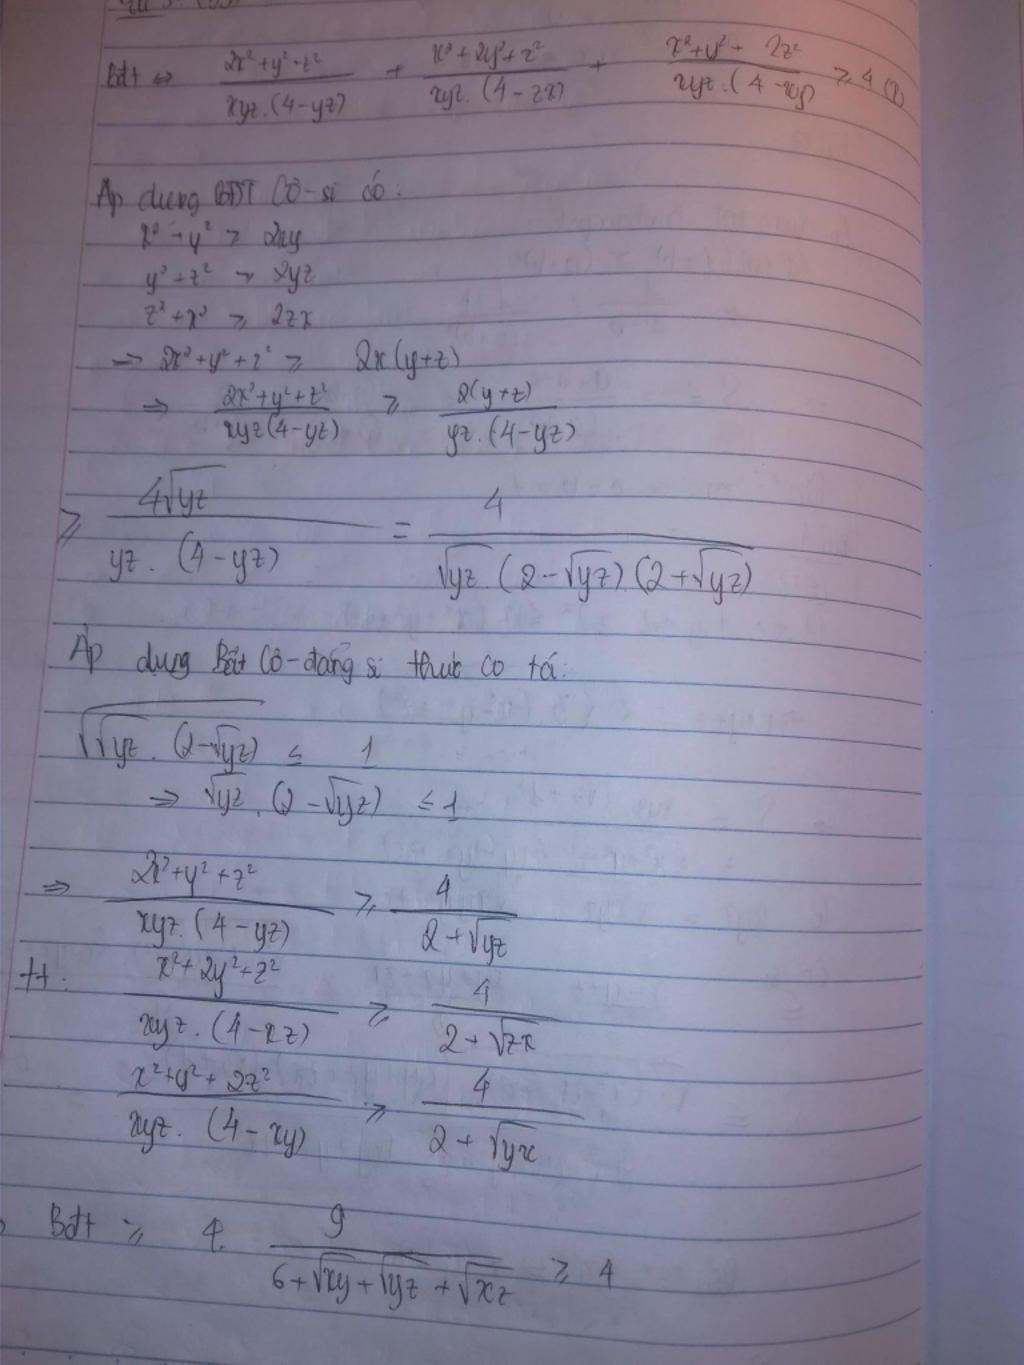 Bđt ⇔ \frac{2x²+y²+z²}{xyz.(4-yz)} + \frac{x²+2y²+z²}{xyz.(4-zx)} + \frac{x²+y²+2z²}{xyz.(4-xy)} ≥ 4 (1)
Áp dụng BĐT Cô-si có:
x²+y² ≥ 2xy
y²+z² ≥ 2yz
z²+x² ≥ 2zx
→ 2x²+y²+z² ≥ 2x(y+z)
⇒ \frac{2x²+y²+z²}{xyz(4-yz)} ≥ \frac{2(y+z)}{yz.(4-yz)}
≥ \frac{4√yz}{yz.(4-yz)} = \frac{4}{√yz.(2-√yz).(2+√yz)}
Áp dụng Bất Cô-đẳng si thưc co tá:
√{√yz.(2-√yz)} ≤ 1
⇒ √yz.(2-√yz) ≤ 1
⇒ \frac{2x²+y²+z²}{xyz.(4-yz)} ≥ \frac{4}{2+√yz}
tt: \frac{x²+2y²+z²}{xyz.(4-xz)} ≥ \frac{4}{2+√zx}
\frac{x²+y²+2z²}{xyz.(4-xy)} ≥ \frac{4}{2+√yx}
Bđt ≥ 4. \frac{9}{6+√xy+√yz+√xz} ≥ 4